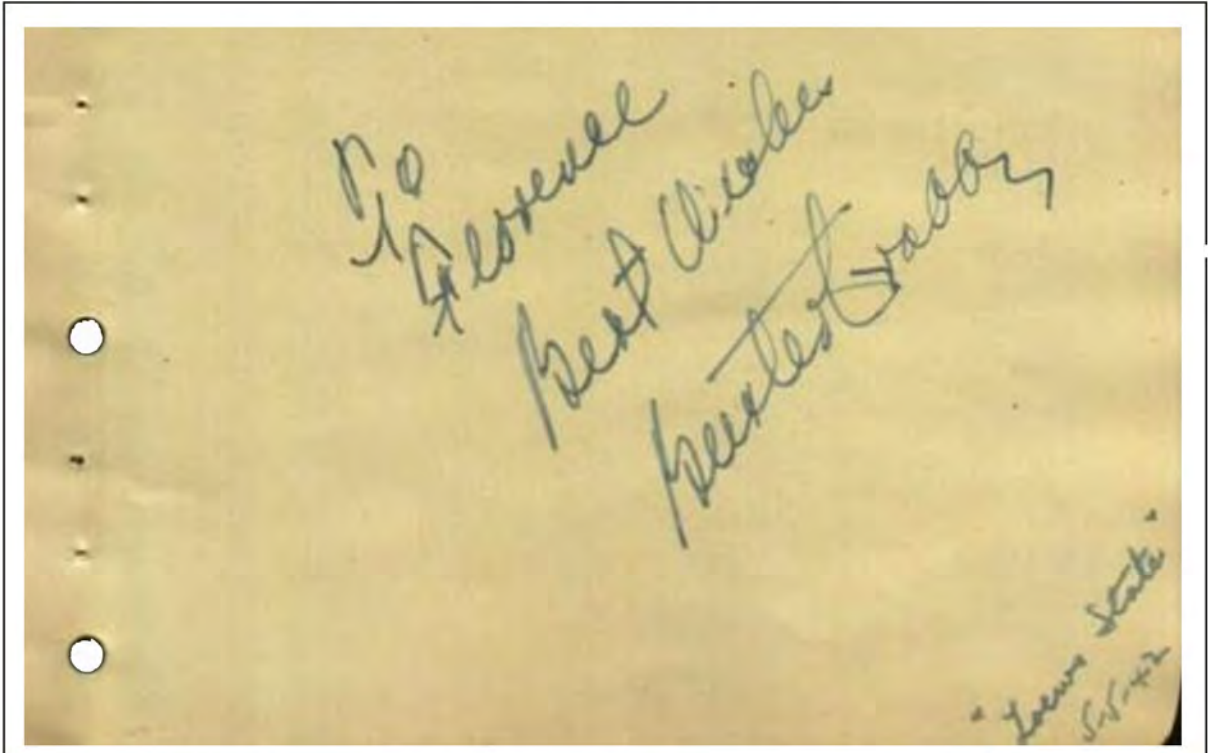 To
Florence
Best Wishes
Buster Crabbe
"Loews State"
5-5-42